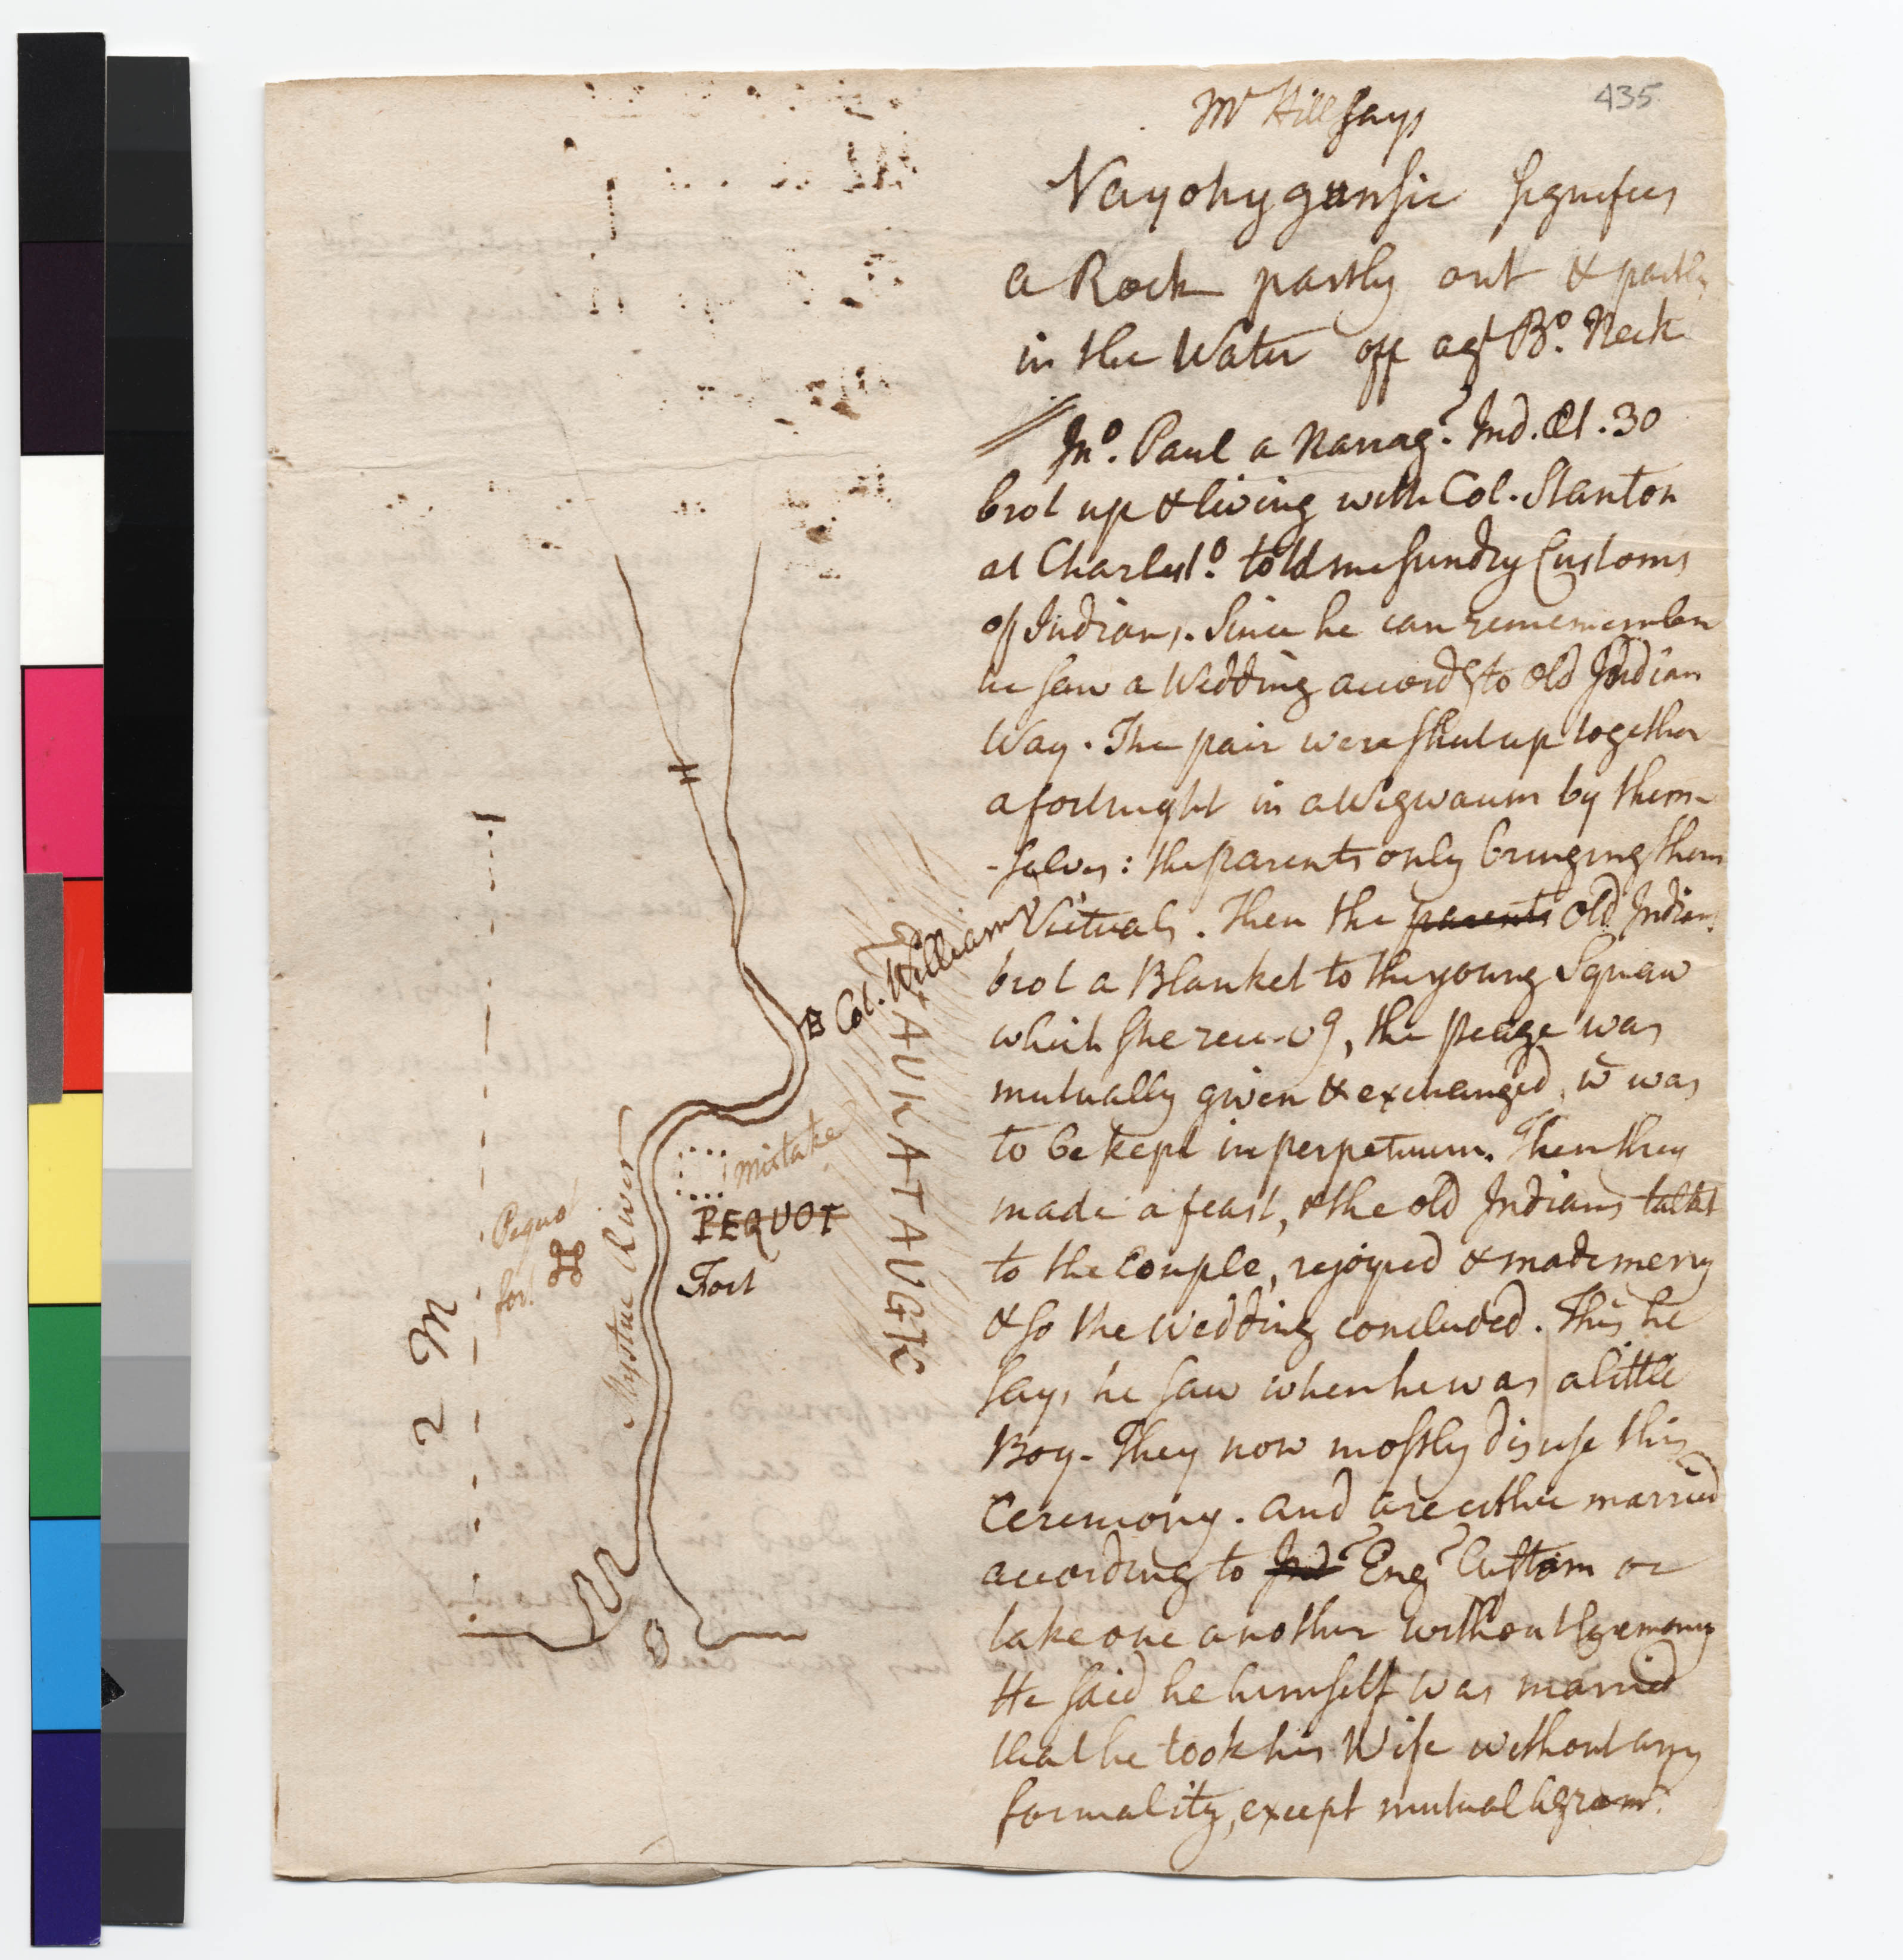 435
Mr Hill says
Nayohygunsic signifies
a Rock partly out & partly
in the Water off agt Bo. Neck
Jno. Paul a Narrag. Ind. Æt. 30
brot up & living with Col. Stanton
at Charlesto. told me sundry Customs
of Indians. Since he can rememember
he saw a Wedding accordg to old Indian
Way. The pair were shut up together
a fortnight in a Wigwaum by them-
-selves: the parents only bringing them
Victuals. Then the parents old Indians
brot a Blanket to the young Squaw
which she receivg, the peage was
mutually given & exchanged, w̄ was
to be kept in perpetuum. Then they
made a feast, & the old Indians talkt
to the Couple, rejoyced & made merry
& so the Wedding concluded. This he
says he saw when he was a little
Boy. They now mostly disuse this
Ceremony. and are either married
according to Ind Eng Custom or
take one another without Ceremony
He said he himself was married
that he took his Wife without any
formality, except mutual Agreemt.
Col. Williams
PAUKATAUGK
mistake
PEQUOT
Fort
Mystic River
Pequot
fort
2 M